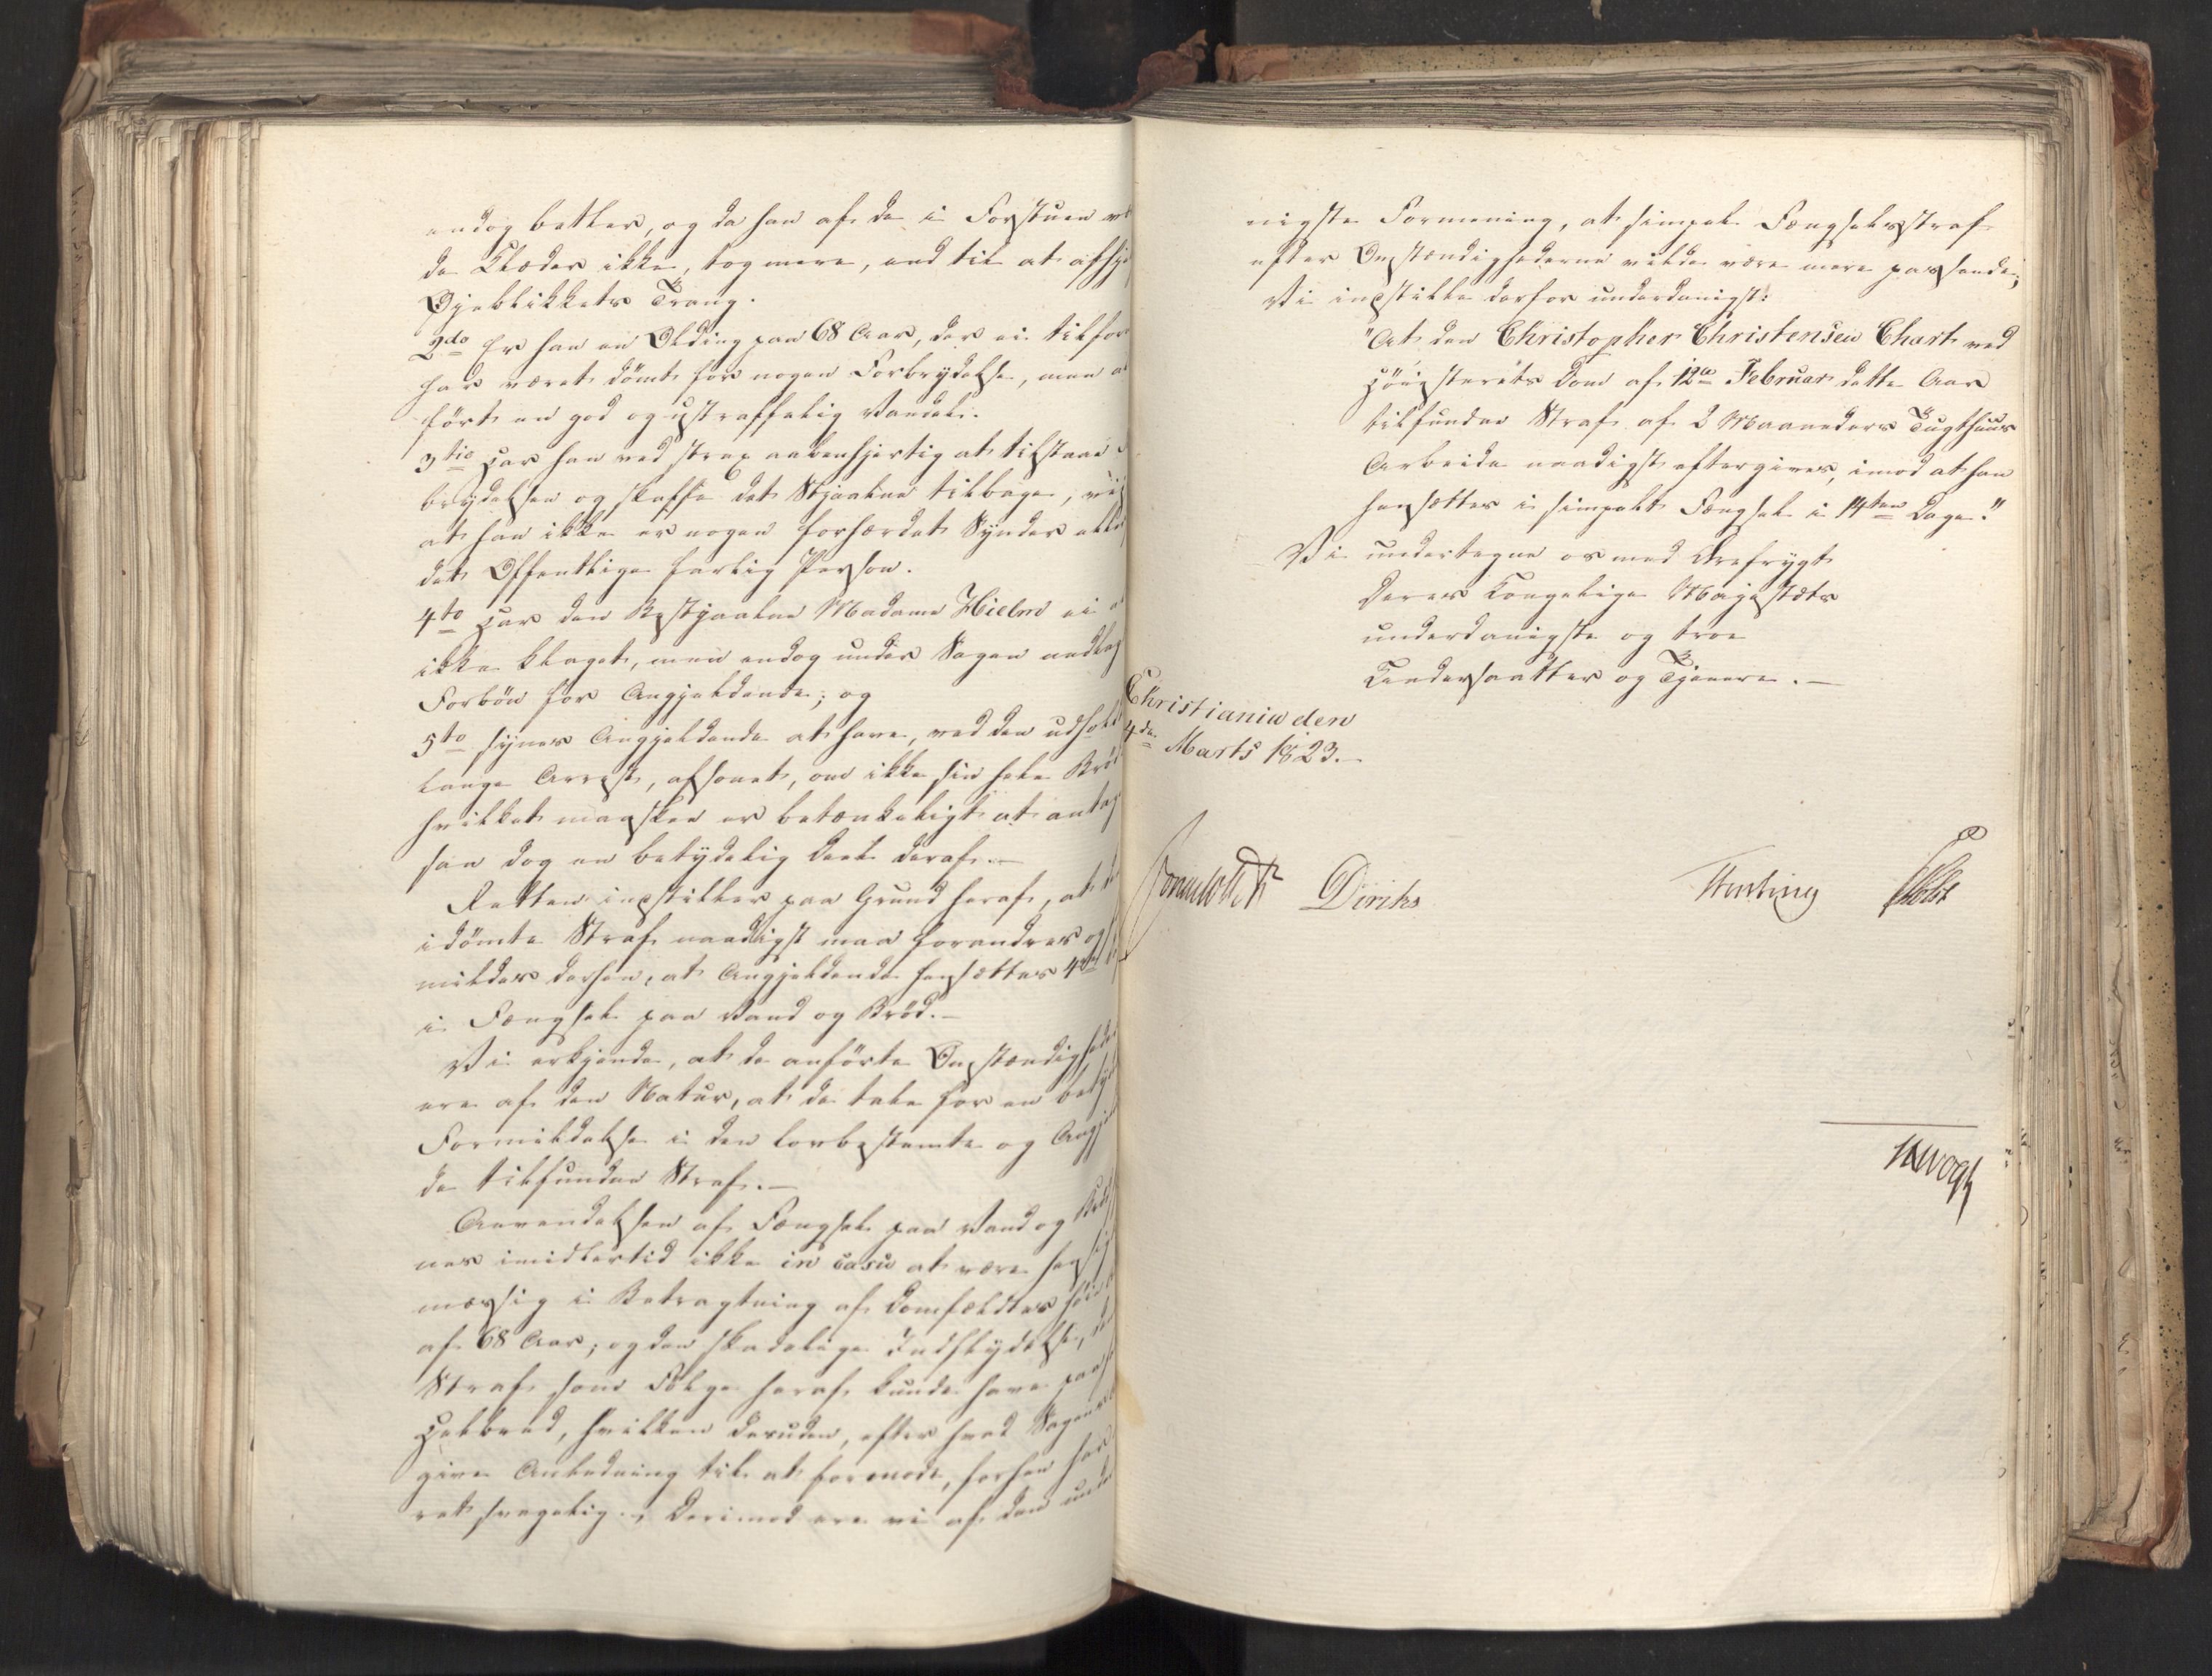 endog betler, og da han af de i Forstuen væ
de Klæder ikke, tog mere, end til at afhjæ
Øjeblikkets Trang.
2do Er han en Olding paa 68 Aar, der ei tilforn
har været dömt for nogen Forbrydelse, men a
ført en god og ustraffelig Vandel.
3tio Har han ved strax aabenhjertig at tilstaae
brydelsen og skaffe det Stjaalne tilbage, vi
at han ikke er nogen forhærdet Synder elle
det Offentlige farlig Person.
4to Har den Bestjaalne Madame Hielm ei a
ikke klaget, men endog under Sagen nedlag
Forbön for Angjeldende; og
5to synes Angjeldende at have, ved den udhold
lange Arrest, afsonet, om ikke sin hele Brö
hvilket maaskee er betænkeligt at antag
saa dog en betydelig Deel deraf.—
Retten indstiller paa Grund heraf, at de
idömte Straf naadigst maa forandres og
mildes derhen, at Angjeldende hensættes 4
i Fængsel paa Vand og Bröd.—
Vi erkjende, at de anförte Omstændigheder
ere af den Natur, at de tale for en betyde
Formildelse i den lovbestemte og Angjel
de tilfundne Straf.—
Anvendelsen af Fængsel paa Vand og Bröd
nes imidlertid ikke in casu at være hensig
mæssig i Betragtning af Domfældtes höie
af 68 Aar; og den skadelige Indflydelse, de
Straf som Fölge heraf kunde have paa h
Helbred, hvilken desuden, efter hvad Sagen
giver Anledning til at formode, forhen har
ret svagelig; Derimod ere vi af den unde
nigste Formening, at simpel Fængselsstraf
efter Omstændighederne vilde være mere passende;
Vi indstille derfor underdanigst:
"At den Christopher Christensen Chart ved
Höiesterets Dom af 12te Februar dette Aar
tilfundne Straf af 2 Maaneders Tugthuus
Arbeide naadigst eftergives, imod at han
hensættes i simpelt Fængsel i 14ten Dage."
Vi undertegne os med Ærefrygt
Deres Kongelige Majestæts
underdanigste og troe
Undersaatter og Tjenere.—
Christiania den
4de Marts 1823.—
Diriks
HVogt